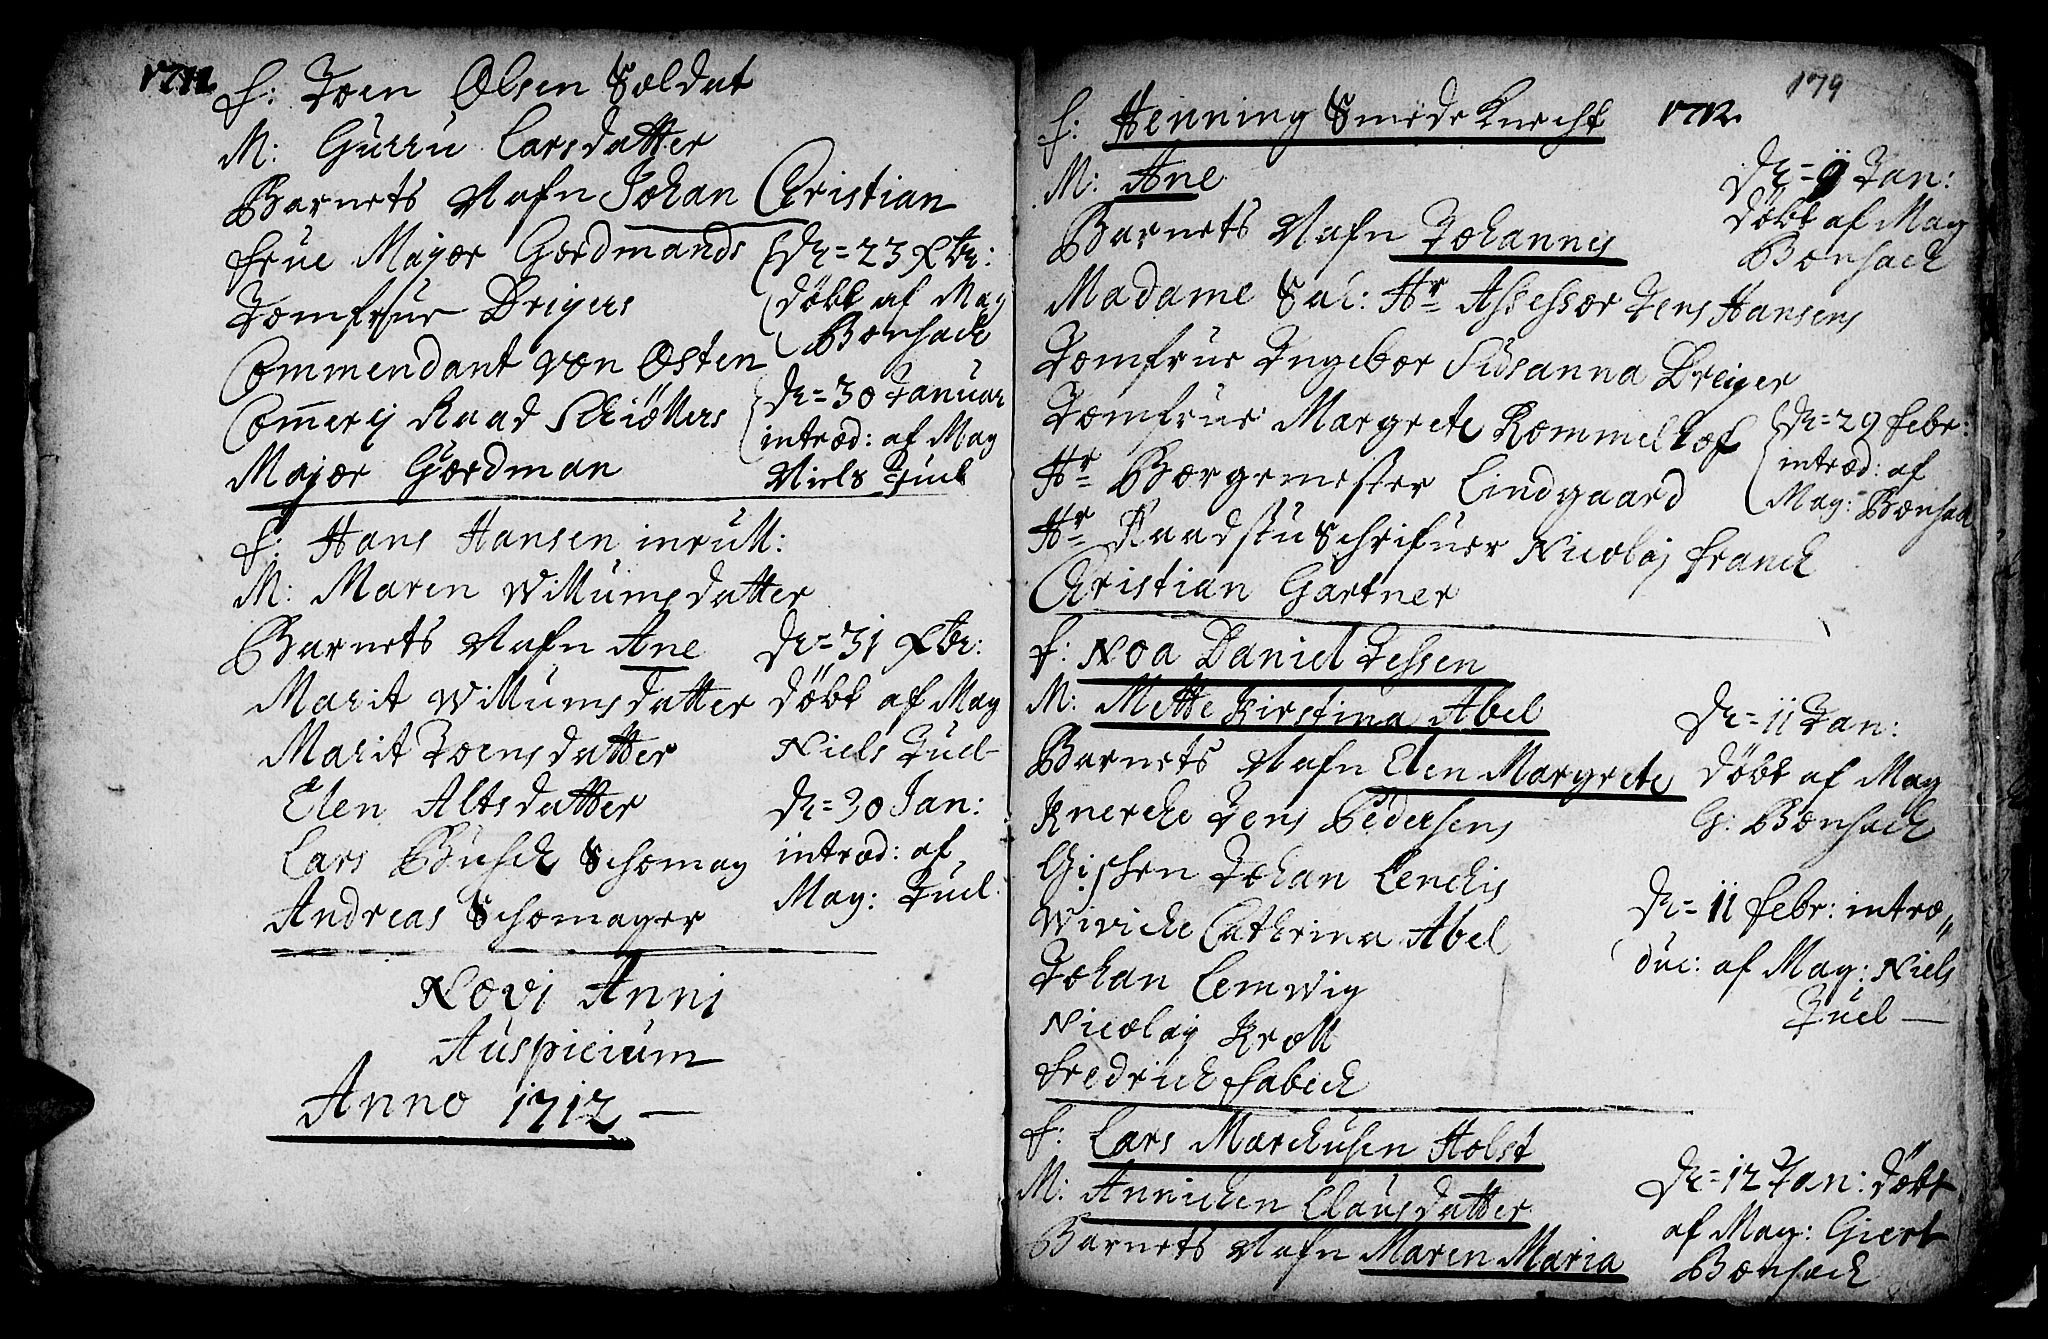 1712
f: Joen Olsen Soldat
M: Gurru Larsdatter
Barnets Nafn Johan Christian
frue Major Gordmands
Jomfrue Dreyers
Commendant von Osten
Com̅ercj Raad Schiöllers
Major Gordman
De = 23 Xbr:
döbt af Mag
Bonsach
De = 30 Januar
introd: af Mag
Niels Juel
f: Hans Hansen inrull:
M: Maren Willumsdatter
Barnets Nafn Ane
Marit Willumsdatter
Marit Joensdatter
Elen Altsdatter
Lars Busch Schomag
Andreas Schomager
De = 31 Xbr:
döbt af Mag
Niels Juel
De = 30 Jan:
introd: af
Mag: Juel
Novj Annj
Auspicium
Anno 1712
179
1712
f: Henning Smede Knecht
M: Ane
Barnets Nafn Johannes
Madame Sal: Hr Assessor Jens Hansens
Jomfrue Ingebor Susanna Dreyer
Jomfrue Margrete Rommelhof
Hr Borgemester Lindgaard
Hr Raadstu Schrifuer Nicolaj Franck
Christian Gartner
De = 9 Jan:
döbt af Mag
Bonsach
De = 29 febr:
introd: af
Mag: Bonsach
f: Noa Daniel Jessen
M: Mette Kirstina Abel
Barnets Nafn Elen Margrete
Jens Pedersens
Johan Lenchis
Wiviche Catherina Abel
Johan Lemwig
Nicolaij Kroll
Fredrich Fabech
De = 11 Jan:
döbt af Mag
G: Bonsach
De = 11 febr: intro„
duc: af Mag: Niels
Juel
f: Lars Marchusen Holst
M: Annichen Clausdatter
Barnets Nafn Maren Maria
De = 12 Jan: döbt
af Mag: Giert
Bonsach